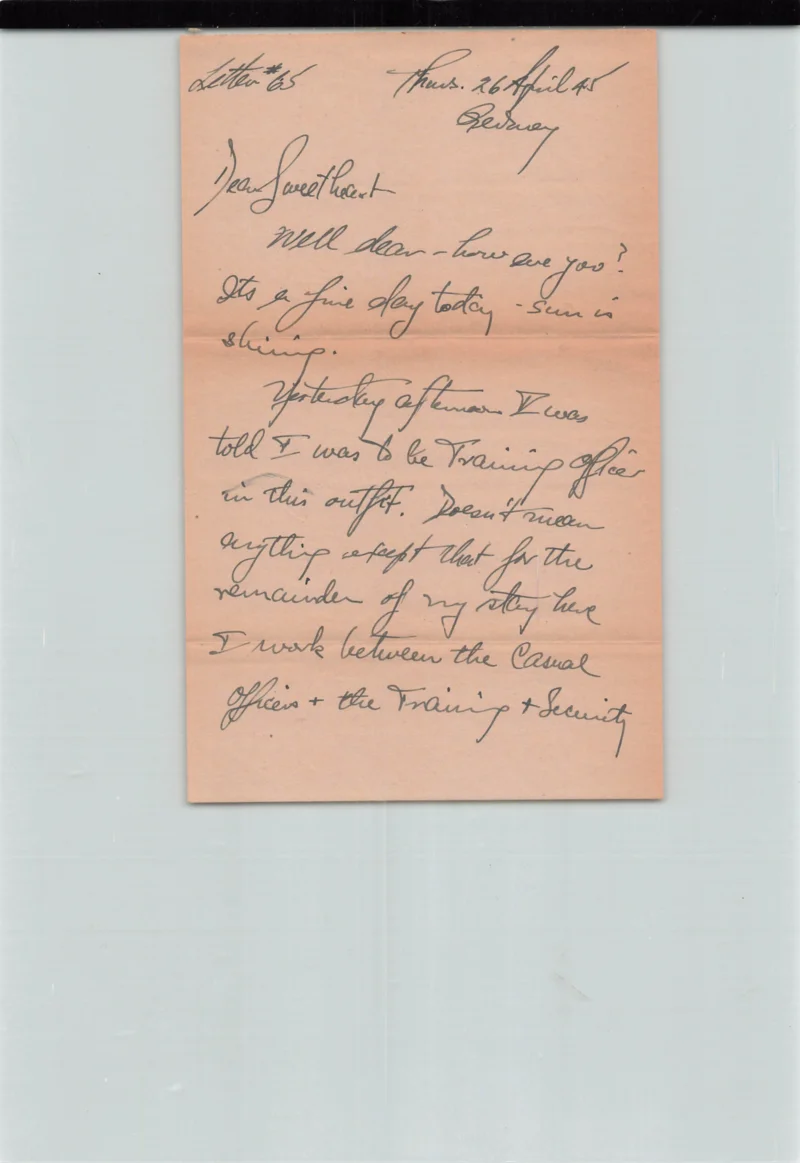 Letter #65 Thurs. 26 April 45
Germany
Dear Sweetheart
Well dear - how are you?
Its a fine day today - sun is
shining.
Yesterday afternoon I was
told I was to be Training Officer
in this outfit. Doesn't mean
anything except that for the
remainder of my stay here
I work between the Casual
Officers + the Training + Security